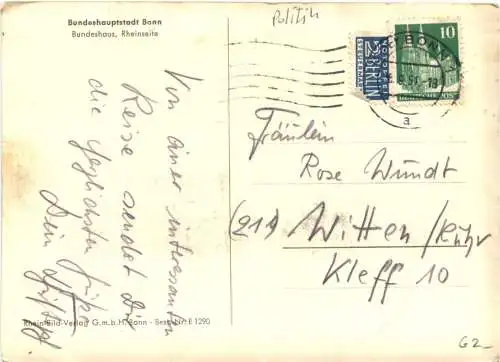 Bundeshauptstadt Bonn
Bundeshaus, Rheinseite
Politik
NOTOPFER
2 BERLIN
STEUERMARKE
10
DEUTSCHE POST
BONN
a
Von einer interessanten
Reise sendet Dir
die herzlichsten Grüße
Dein
Fräulein
Rose Wundt
(21a) Witten/Ruhr
Kleff 10
Rhein-Bild-Verlag G.m.b.H. Bonn - Best.-Nr. E 1290
G2-